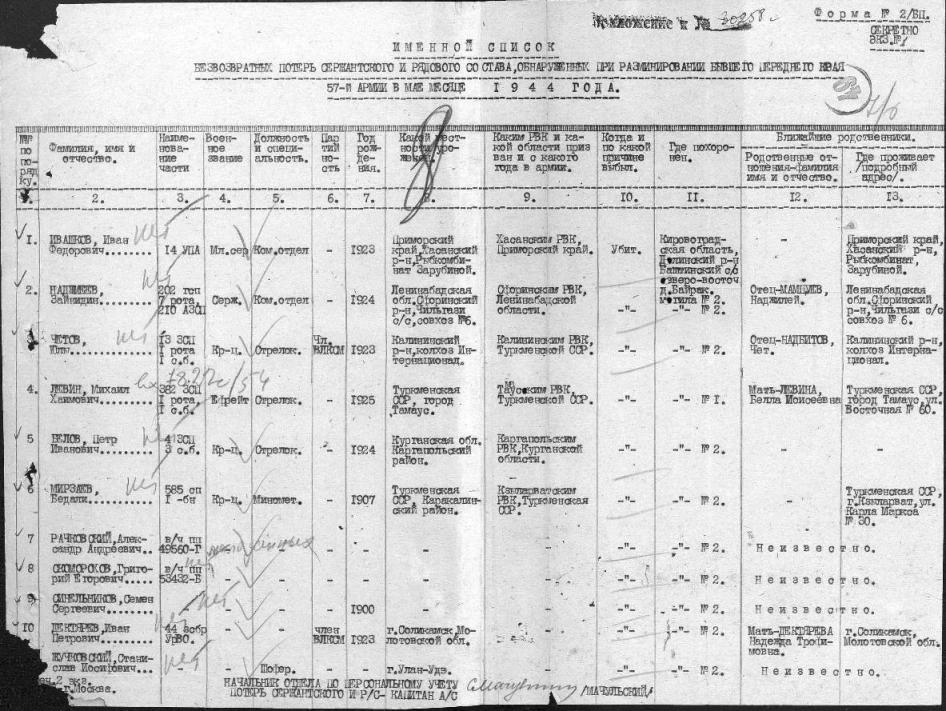 Приложение к № 30258с
Форма № 2/БП.
СЕКРЕТНО
ЭКЗ.№ 1
ИМЕННОЙ СПИСОК
БЕЗВОЗВРАТНЫХ ПОТЕРЬ СЕРЖАНТСКОГО И РЯДОВОГО СОСТАВА,ОБНАРУЖЕННЫХ ПРИ РАЗМИНИРОВАНИИ БЫВШЕГО ПЕРЕДНЕГО КРАЯ
57-й АРМИИ В МАЕ МЕСЯЦЕ 1944 ГОДА.
№№ по порядку. Фамилия, имя и отчество. Наименование части Военное звание Должность и специальность. Партийность Год рождения. Каким РВК и какой области призван и с какого года в армии. Когда и по какой причине выбыл. Где похоронен. Ближайшие родственники.
Родственные отношения-фамилия имя и отчество. Где проживает подробный адрес/.
2. 3. 4. 5. 6. 7. 8. 9. 10. 11. 12. 13.
1. ИВАШКОВ, Иван Федорович. 14 УПА Мл.сер Ком.отдел - 1923 Приморский край,Хасанский р-н,Рыбкомбинат Зарубиной. Хасанским РВК, Приморский край. Убит. Кировоградская область, Долинский р-н с/с д.Байрак. могила № 2. - Приморский край, Хасанский р-н, Рыбкомбинат, Зарубиной.
2. Зайнидин. 202 гсп 7 рота 210 АЗСП Серж. Ком.отдел - 1924 Ленинабадская обл. р-н, с/с,совхоз №6. РВК, Ленинабадской области. -"- -"- № 2. Отец- Наджилей. Ленинабадская обл. р-н, с/с, совхоз № 6.
3. ЧЕТОВ, 13 ЗСП 1 рота 1 с.б. Кр-ц. Стрелок. Чл. ВЛКСМ 1923 Калининский р-н,колхоз Интернационал. Калининским РВК, Туркменской ССР. -"- -"- № 2. Отец-НАДБИТОВ, Чет. Калининский р-н, колхоз Интернационал.
4. ЛЕВИН, Михаил Хаимович. 382 ЗСП 1 рота 1 с.б. Ефрейт Стрелок. - 1925 Туркменская ССР, город Тамаус. РВК, Туркменской ССР. -"- -"- № 1. Мать-ЛЕВИНА, Белла Моисеевна Туркменская ССР, город Тамаус,ул. Восточная № 60.
5 БЕЛОВ, Петр Иванович. ЗСП 3 с.б. Кр-ц. Стрелок. - 1924 Курганская обл. Каргапольский район. Каргапольским РВК,Курганской области. -"- -"- № 2. - -
6 МИРЗАЕВ, Бедали. 585 сп 1-бн Кр-ц. Миномет. - 1907 Туркменская ССР, Каракалинский район. Кзыларватским РВК,Туркменская ССР. -"- -"- № 2. - Туркменская ССР, г.Кзыларват,ул. Карла Маркса № 30.
7 РАЧКОВСКИЙ,Александр Андреевич.. в/ч пп 49560-Г - - - - - - -"- -"- № 2. Неизвестно.
8 СКОМОРОХОВ, Григорий Егорович.. в/ч пп 53432-Б - - - - - - -"- -"- № 2. Неизвестно.
9 СИНЕЛЬНИКОВ,Семен Сергеевич. - - - - 1900 - - -"- -"- № 2. Неизвестно.
10 ДЕКТЯРЕВ,Иван Петрович. 44 зсбр УрВО. - - член ВЛКСМ 1923 г.Соликамск,Молотовской обл. - -"- -"- № 2. Мать-ДЕКТЯРЕВА Надежда Трофимовна. г.Соликамск, Молотовской обл.
ЖУЧКОВСКИЙ,Станислав Иосифович. - - Шофер. - - г.Улан-Удэ. - -"- -"- № 2. Неизвестно.
2 экз.
г.Москва.
НАЧАЛЬНИК ОТДЕЛА ПО ПЕРСОНАЛЬНОМУ УЧЕТУ
ПОТЕРЬ СЕРЖАНТСКОГО И Р/С- КАПИТАН А/С /МАЧУЛЬСКИЙ/